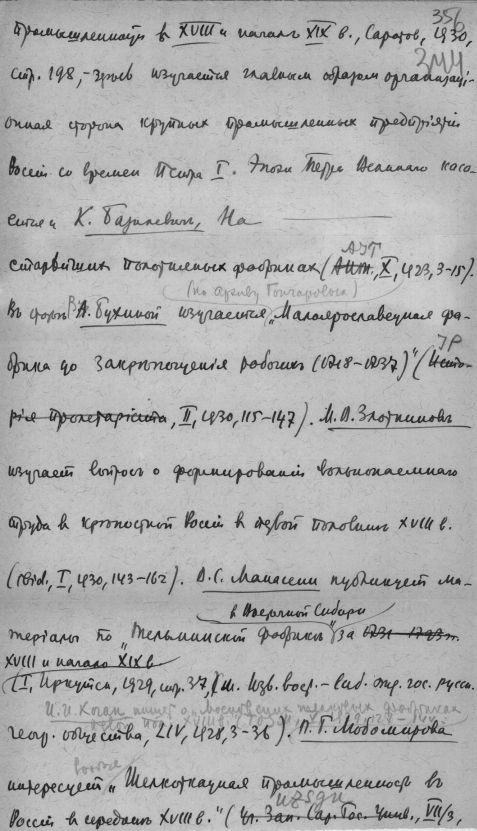 356
344
промышленности в XVIII и начале XIX в., Саратов, 1930,
стр. 198,- здесь изучается главным образом организаці-
онная сторона крупных промышленных предпріятій
Россіи со времен Петра I. Эпохи Петра Великаго каса-
ется и К. Базилевич, На
старейших полотняных фабриках (АИТ, X, 1923, 3-15).
АЗТ
(по архиву Гончаровых)
В статье В. А. Бухиной изучается „Малоярославецкая фа-
брика до закрепощенія рабочих (1718-1737)" (Исто-
IP
рія пролетаріата, II, 1930, 115-147). М. Д. Злотников
изучает вопрос о формированіи вольнонаемнаго
труда в крепостной Россіи в первой половине XVIII в.
(ibid., I, 1930, 143-162). В. С. Манассеин публикует ма-
в Восточной Сибири
теріалы по „Тельминской фабрике" за 1731-1793 гг.
XVIII и начало XIX в
(I, Иркутск, 1929, стр. 37, Изв. Вост.-Сиб. отд. гос. русск.
И. И. Коган пишет о „московских шелковых фабриках
геогр. общества, LIV, 1928, 3-36). П. Г. Любомирова
интересует „Шелкоткацкая промышленность в
Россіи в середине XVIII в." (Уч. Зап. Сар. Гос. Унив., VII/3,
UZSGU